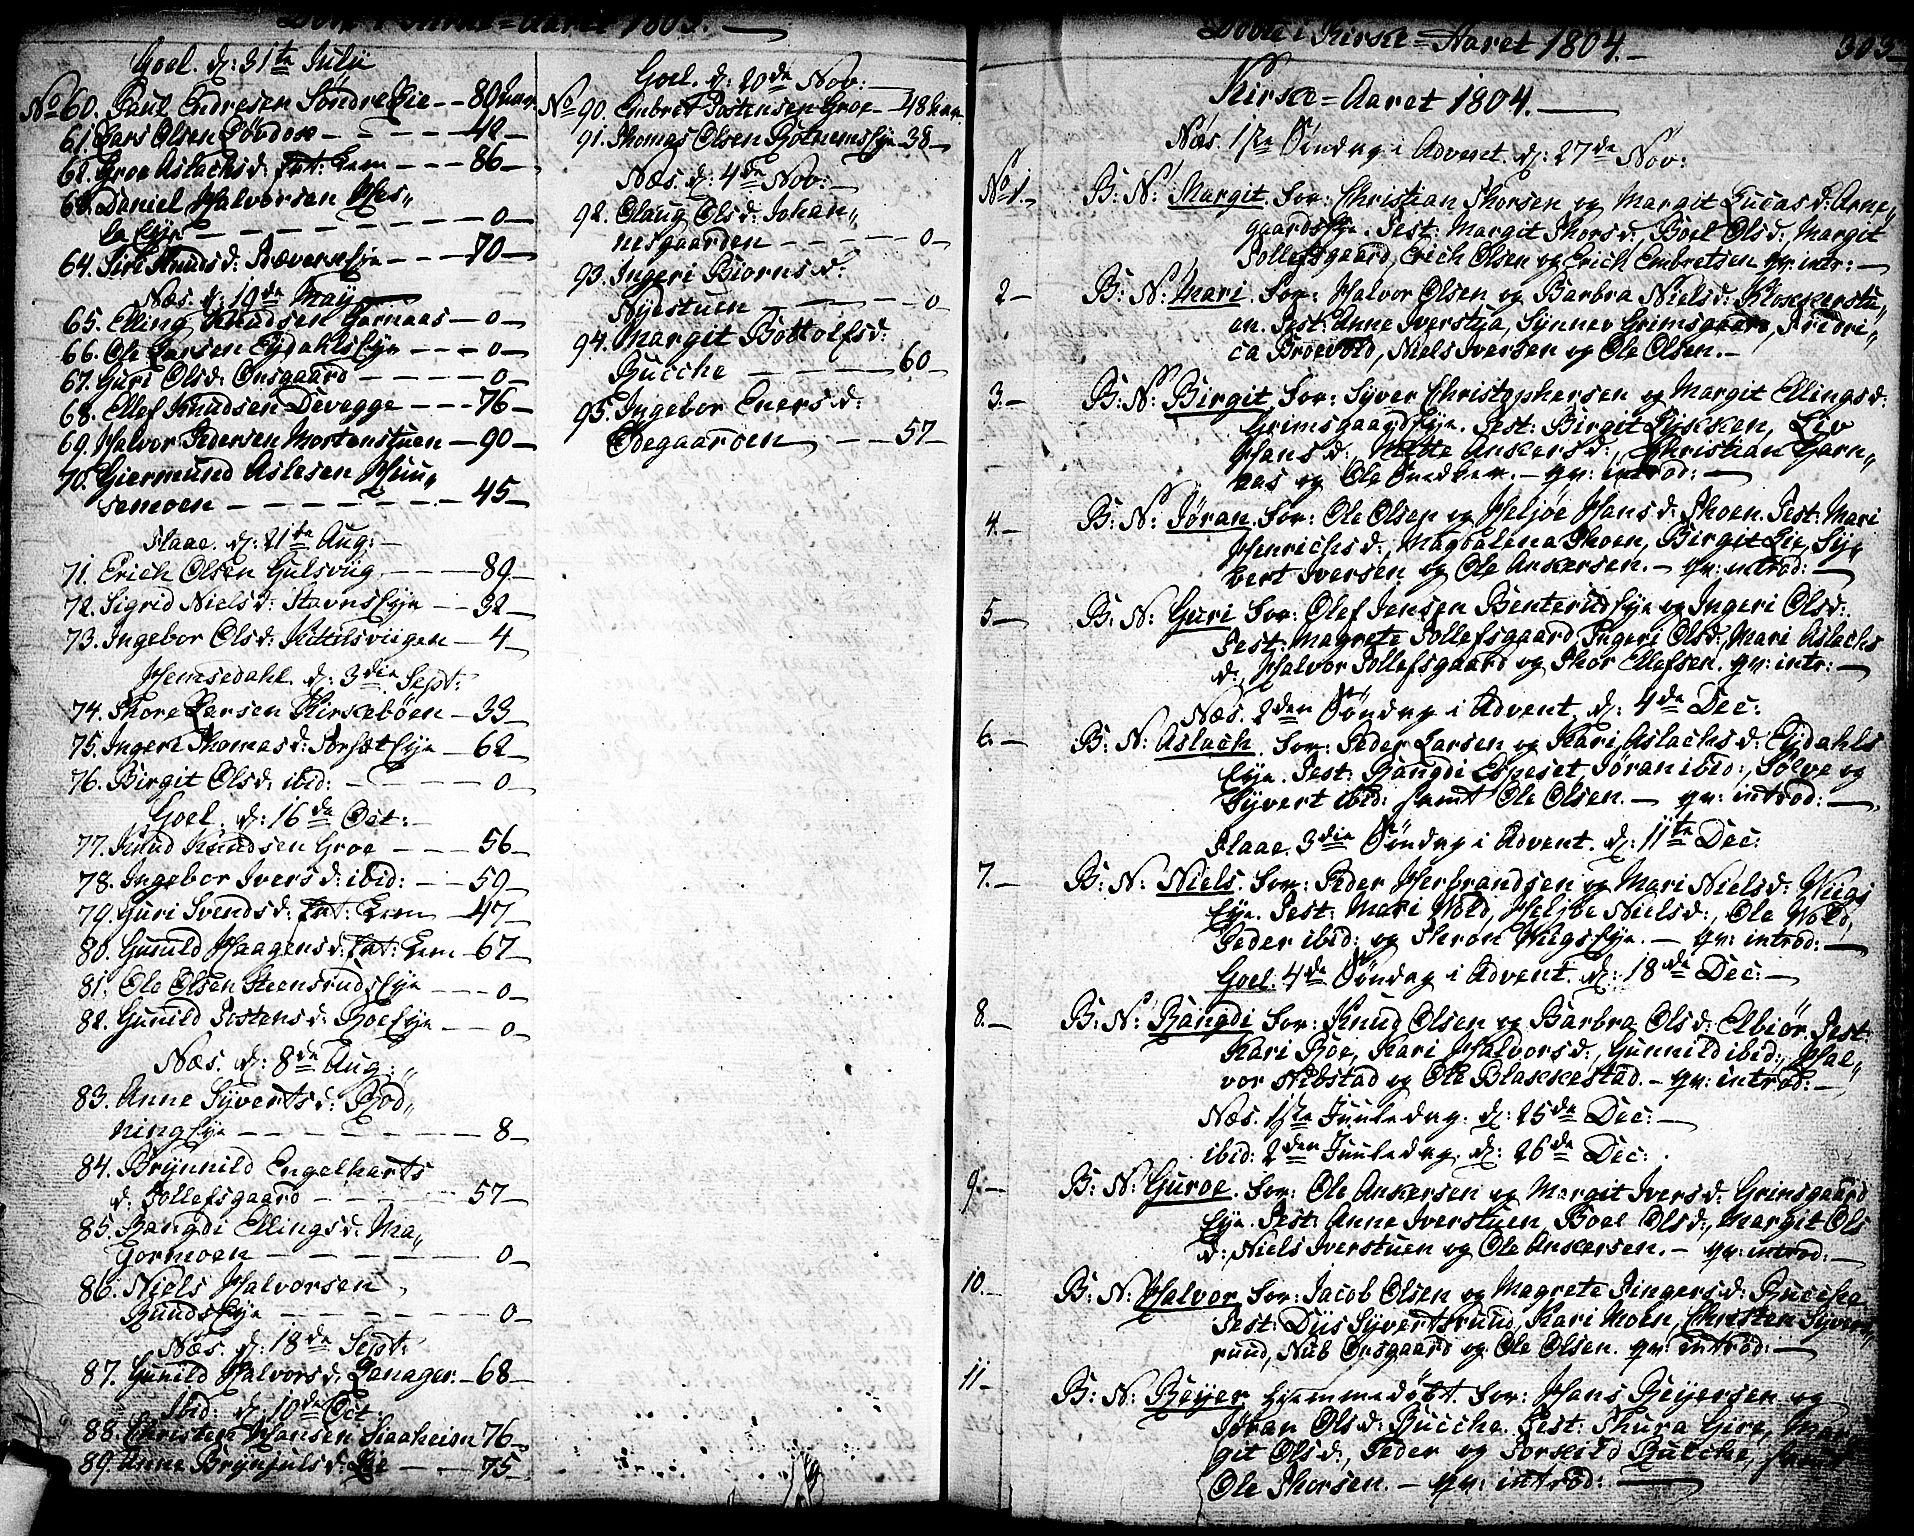 Aaret 1803.
Goel. d: 31te Julii
No 60. Paul Endresen Søndre Lie -- 80 aar
61. Lars Olsen - - - - 42 -
62. Groe Aslachsd: fat: Lem - - - 86 -
63. Daniel Halvorsen Hes„
la Eye - - - - - - 0 -
64. Siri Knudsd: Eye - - - 70 -
Næs. d: 19de May
65. Elling Knudsen Garnaas - 0 -
66. Ole Larsen Eydahls Eye - - - 0 -
67. Guri Olsd: Onsgaard - - - - - 0 -
68. Ellef Knudsen Devegge - - - 76 -
69. Halvor Pedersen Mortenstuen - 90 -
70. Giermund Aslesen Huu„
semoen - - - - - - - 45 -
Flaae. d: 21te Aug: -
71. Erich Olsen Gulsviig - - - - 89 -
72. Sigrid Nielsd: Stavns Eye - - 32 -
73. Ingebor Olsd: Kittilsviigen - 4 -
Hemsedahl. d: 3die Sept:
74. Thore Larsen Kirkebøen - 33 -
75. Ingeri Thomasd: Eye - - 62 -
76. Birgit Olsd: ibid: - - - - 0 -
Goel. d: 16de Oct: -
77. Knud Knudsen Groe - - - 56 -
78. Ingebor Iversd: ibid: - - - 59 -
79. Guri Svendsd: fat: Lem - 47 -
80. Gunild Haagensd: fat: Lem - 67 -
81. Ole Olsen Steensruds Eye - - - 0 -
82. Gunild Tostensd: Roe Eye - - - 0 -
Næs. d: 8de Aug:
83. Anne Syvertsd: Rod„
ning Eye - - - - - - 8 -
84. Brynnild Engelharts
d. Tollefsgaard - - - - - 57 -
85. Rangdi Ellingsd: Ma„
gormoen - - - - - - 0 -
86. Niels Halvorsen
Ruuds Eye - - - - - - 0 -
Næs. d: 18de Sept:
87. Gunild Halvorsd: Ranager. - 68 -
Ibid: d: 10de Oct:
88. Christen Hansen Skaaheim 76 -
89. Anne Brynjulsd: Lie - - - 75 -
Goel. d: 20de Nov: -
No 90. Embret Tostensen Groe - 48 aar
91. Thomas Olsen Rotneims Eye 38 -
Næs. d: 4de Nov: -
92. Olaug Olsd: Johan„
nesgaarden - - - - - 0 -
93. Ingeri Biornsd:
Nystuen - - - - 0
94. Margit Bottolfsd:
Bucche - - - - - 60 -
95. Ingebor Enersd:
Ødegaarden - - - 57 -
Døbte i Kirke=Aaret 1804. -
303
Kirke=Aaret 1804. -
Næs. 1ste Søndag i Advent. d: 27de Nov:
No 1. - B: N: Margit. For: Christian Thorsen og Margit Lucasd: Arne„
gaards Eye. Test: Margit Thorsd:, Boel Olsd:, Margit
Tollefsgaard, Erich Olsen og Erich Embretsen qv: intr: -
2 - B: N: Mari. For: Halvor Olsen og Barbra Nielsd: Klokkerstu„
en. Test: Anne Iverstua, Synnev Grimsgaard, Fridri„
ca Broevold, Niels Iversen og Ole Olsen. -
3. - B: N: Birgit For: Syver Christophersen og Margit Ellingsd:
Grimsgaards Eye. Test: Birgit Lykken, Liv
Hansd:, Mette Ankersd:, Christian Garn„
aas og Ole - qv: introd: -
4. - B: N: Jøran. For: Ole Olsen og Heljøe Hansd: Thoen. Test: Mari
Henrichsd:, Magdalena Thoen, Birgit Lie, Sy„
vert Iversen og Ole Ankersen. - qv: introd: -
5 - B: N: Guri For: Olef Jensen Benterud Eye og Ingeri Olsd:
Test: Magrete Tollefsgaard, Ingeri Olsd:, Mari Aslachs
d:, Halvor Tollefsgaard og Thor Ellefsen. qv: intr: -
Næs. 2den Søndag i Advent. d: 4de Dec:
6. - B: N: Aslach. For: Peder Larsen og Kari Aslachsd: Eydahls
Eye. Test: Rangdi Espeset, Jøran ibid:, Sølve og
Syvert ibid: samt Ole Olsen. - qv: introd: -
Flaae. 3die Søndag i Advent. d: 11te Dec:
7. - B: N: Niels. For: Peder Herbrandsen og Mari Nielsd: Wiigs
Eye. Test: Mari Wold, Heljøe Nielsd:, Ole Wold,
Peder ibid: og Thron Wiigs Eye. - qv: introd: -
Goel. 4de Søndag i Advent. d: 18de Dec: -
8. - B: N: Rangdi For: Knud Olsen og Barbra Olsd: Elbiør. Test:
Kari Roe, Kari Halvorsd:, Gunnild ibid:, Hal„
vor Nibstad og Ole Blakkestad. - qv: introd: -
Næs. 1ste Juuledag. d: 25de Dec: -
ibid: 2den Juuledag. d: 26de Dec:
9. - B: N: Guroe. For: Ole Ankersen og Margit Iversd: Grimsgaard
Eye. Test: Anne Iverstuen, Boel Olsd:, Margit Ols
d:, Niels Iverstuen og Ole Ankersen. - qv: introd: -
10. - B: N: Halvor For: Jacob Olsen og Magrete Pingersd: Bucche.
Test: Diis Syvertsruud, Kari Moen, Christen Syverts„
ruud, Nub Onsgaard og Ole Olsen. qv: introd: -
11 - B: N: Reyer hiemmedøbt For: Hans Reyersen og
Jøran Olsd: Bucche. Test: Thura Gire, Mar„
git Olsd:, Peder og Torkild Bucche, samt
Ole Thorsen. - qv: introd: -